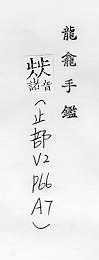 龍龕手鑑
音諸
(止部V2P66A7)